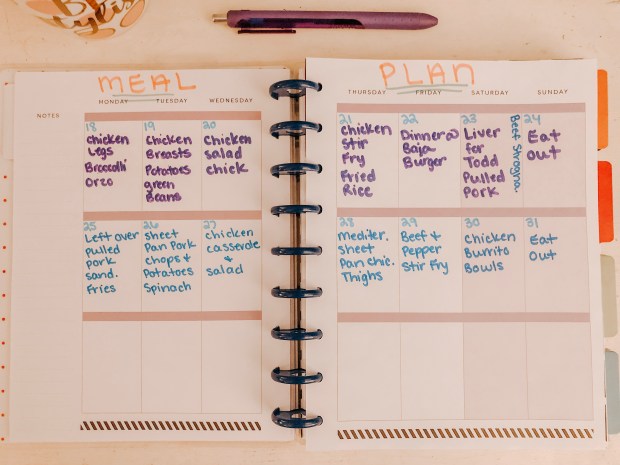 MEAL
PLAN
NOTES
MONDAY
TUESDAY
WEDNESDAY
THURSDAY
FRIDAY
SATURDAY
SUNDAY
18
Chicken
Legs
Broccolli
Orzo
19
Chicken
Breasts
Potatoes
green
Beans
20
Chicken
salad
chick
21
Chicken
Stir
Fry
Fried
Rice
22
Dinner@
Baja
Burger
23
Liver
for
Todd
Pulled
Pork
Beef Strogna.
24
Eat
out
25
Left over
pulled
pork
sand.
Fries
26
sheet
Pan Pork
chops +
Potatoes
Spinach
27
chicken
casserole
+
salad
28
mediter.
sheet
Pan chic.
Thighs
29
Beef +
Pepper
Stir Fry
30
Chicken
Burrito
Bowls
31
Eat
Out